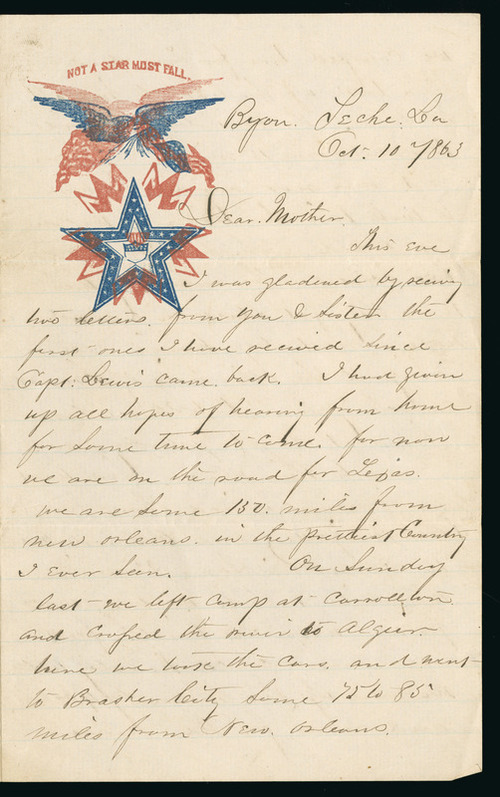 NOT A STAR MUST FALL.
Byou. Teche. La
Oct. 10th 1863
Dear. Mother.
This Eve
I was gladened by receivg
two letters. from you & Sister the
first ones I have recieved since
Capt: Lewis came back. I had givin
up all hopes of hearing from home
for some time to come. for now
we are on the road for Texas.
we are some 130. miles from
new orleans. in the prettiest Country
I ever seen. On Sunday
last we left camp at Carrollton.
and crossed the river to Algiers.
here we took the cars. and went
to Brasher City some 75 to 85
miles from New. Orleans.